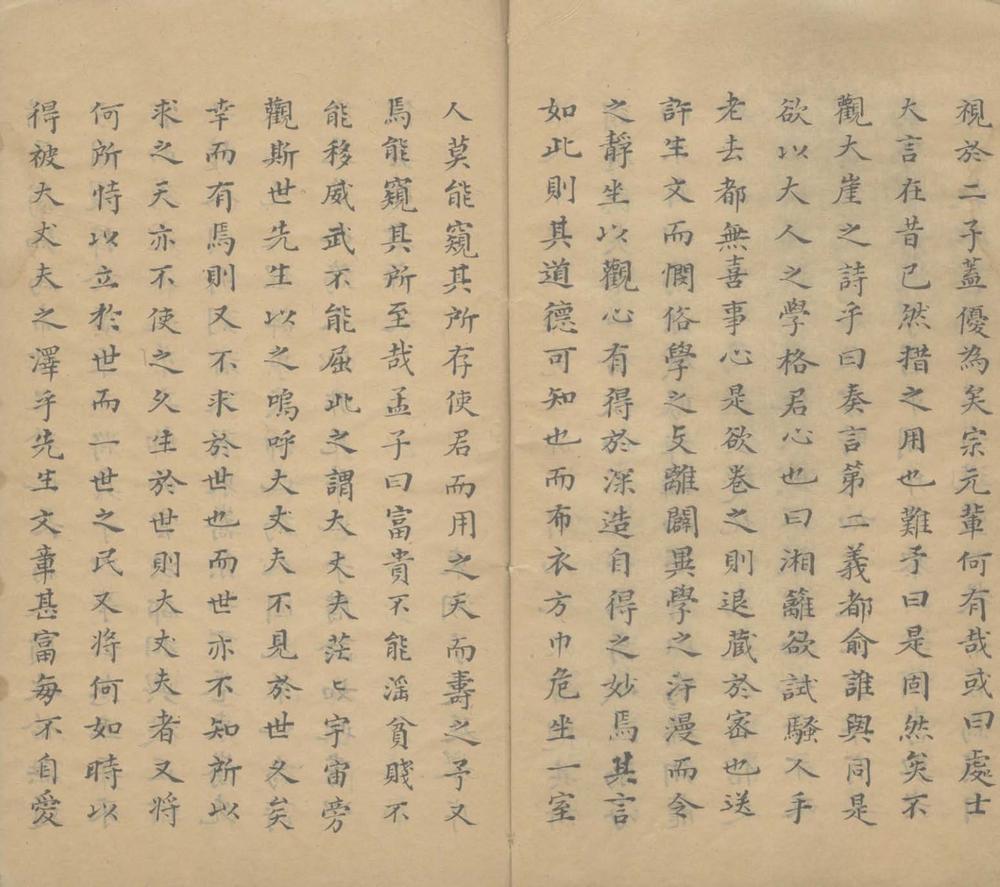 視於二子蓋優為矣宗元輩何有哉或曰處士
大言在昔已然措之用也難予曰是固然矣不
觀大崖之詩乎曰奏言第二義都俞誰與同是
欲以大人之學格君心也曰湘籬欲試騷人手
老去都無喜事心是欲卷之則退藏於宻也送
許生文而憫俗學之攴離闢異學之汗漫而令
之靜坐以觀心有得於深造自得之妙焉其言
如此則其道德可知也而布衣方巾危坐一室
人莫能窺其所存使君而用之天而壽之予又
焉能窺其所至哉孟子曰富貴不能滛貧賤不
能移威武不能屈此之謂大丈夫茫〻宇宙旁
觀斯世先生以之嗚呼大丈夫不見於世久矣
幸而有焉則又不求於世也而世亦不知所以
求之天亦不使之久生於世則大丈夫者又將
何所恃以立於世而一世之民又將何如時以
得被大丈夫之澤乎先生文章甚富每不自愛